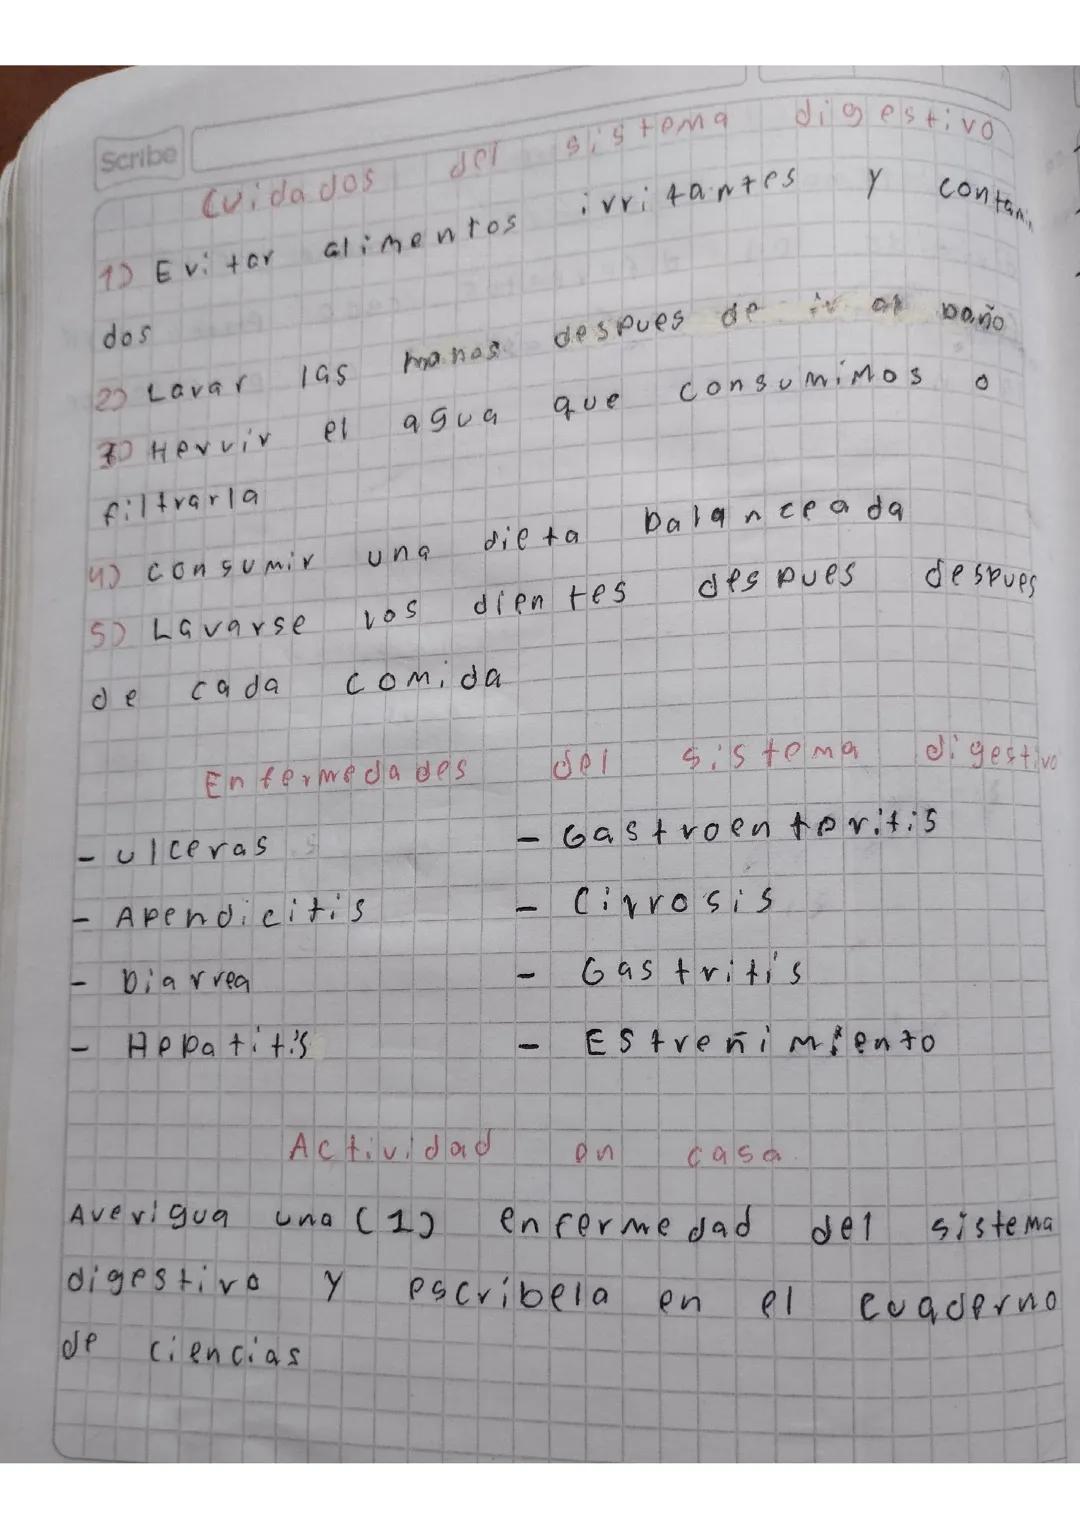 Scribe
Cuidados del sistema digestivo
1) Evitar alimentos irritantes y contamin
dos
2) Lavar las manos despues de ir al baño
3) Hervir el agua que consumimos o
filtrarla
4) consumir una dieta balanceada
5) Lavarse los dientes despues despues
de cada comida
Enfermedades del sistema digestivo
- ulceras - Gastroenteritis
- Apendicitis - Cirrosis
- Diarrea - Gastritis
- Hepatitis - Estreñimiento
Actividad en casa.
Averigua una (1) enfermedad del sistema
digestivo y escribela en el cuaderno
de ciencias